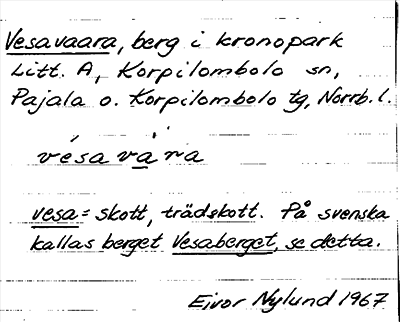 Vesavaara, berg i kronopark
Litt. A, Korpilombolo sn,
Pajala o. Korpilombolo tg, Norrb. l.
vésavàra
vesa = skott, trädskott. På svenska
kallas berget Vesaberget, se detta.
Eivor Nylund 1967